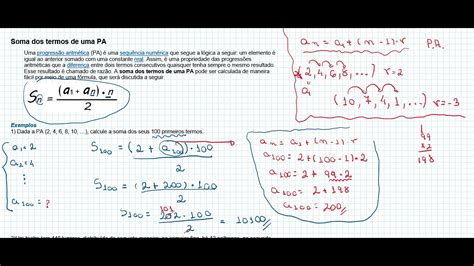 Soma dos termos de uma PA
Uma progressão aritmética (PA) é uma sequência numérica que segue a lógica a seguir: um elemento é
igual ao anterior somado com uma constante real. Assim, é uma propriedade das progressões
aritméticas que a diferença entre dois termos consecutivos quaisquer tenha sempre o mesmo resultado.
Esse resultado é chamado de razão. A soma dos termos de uma PA pode ser calculada de maneira
fácil por meio de uma fórmula, que será discutida a seguir.
Sn = (a1 + an) · n / 2
Exemplos
1) Dada a PA (2, 4, 6, 8, 10, ...), calcule a soma dos seus 100 primeiros termos.
a1 = 2
a2 = 4
a100 = ?
S100 = (2 + a100) · 100 / 2
S100 = (2 + 200) · 100 / 2
S100 = 202 · 100 / 2 = 10100
101
an = a1 + (n-1) · r
a100 = 2 + (100-1) · 2
a100 = 2 + 99 · 2
a100 = 2 + 198
a100 = 200
an = a1 + (n-1) · r P.A.
(2, 4, 6, 8, ...) r = 2
a1
(10, 7, 4, 1, ...) r = -3
1
99
x2
198